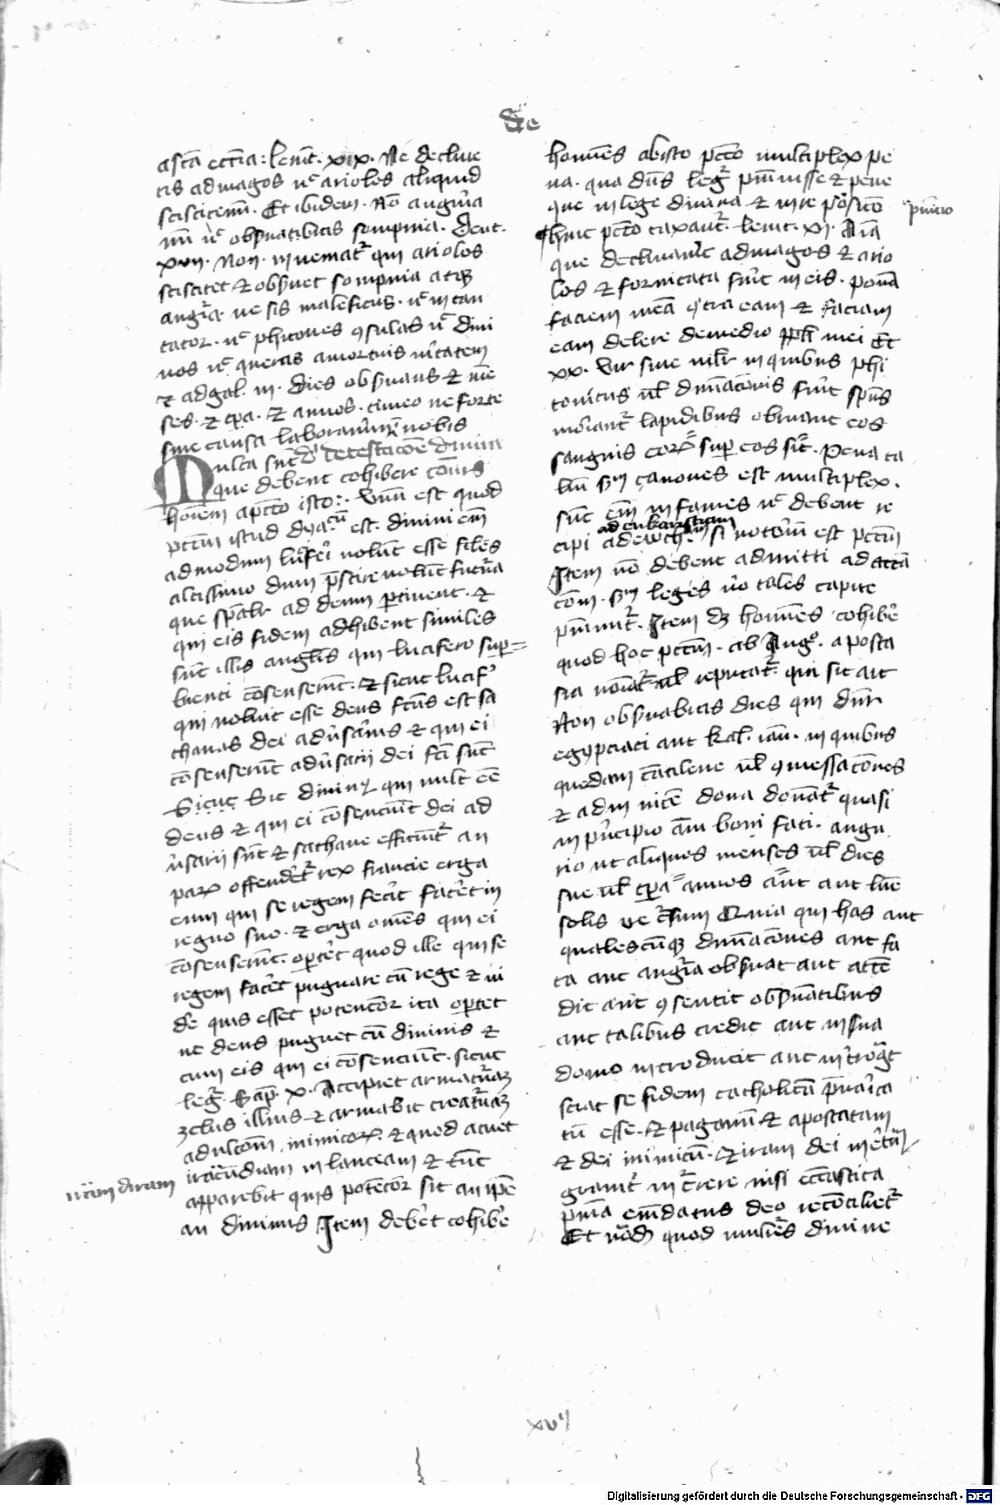 De
asca eccia : levit . xix . Ne declive
tis ad magos nec ariolos aliquid
sciscitemini . Et ibidem . Non augura
mini nec observabitis sompnia . Deut .
xviii . Non inveniatur qui ariolos
sciscitet et observet sompnia atque
auguria . ne sis maleficus . nec incan
tator . nec phitones consulas nec divi
nos nec queras a mortuis veritatem
et ad gal . iii . Dies observatis et men
ses . et tempora . et annos . timeo ne forte
sine causa laboraverim in vobis
Multa sunt de detestacione divina
que debent cohibere cuius
hominem a peccato isto : . Unum est quod
peccatum istud dyabolicum est . divini enim
ad modum luciferi volunt esse similes
altissimo dum prescire volunt futura
que specialiter ad deum pertinent . et
qui eis fidem adhibent similes
sunt illis angelis qui lucifero super=
bienti consenserunt . et sicut lucifer
qui voluit esse deus factus est sa
thanas dei adversarius et qui ei
consenserunt adversarii dei facti sunt
Sicut Sic divinus qui vult esse
deus et qui ei consenciunt dei ad
versarii sunt et sathane efficiuntur an
parum offenderetur rex francie erga
eum qui se regem feceret faceret in
regno suo . et erga omnes qui ei
consenserunt . oporteret quod ille qui se
regem faceret pugnaret cum rege et vi
de quis esset potencior ita oportet
ut deus pugnet cum divinis et
cum eis qui ei consenciunt . sicut
legitur Sap . v . Accipiet armaturam
zelus illius et armabit creaturam
ad ulcionem inimicorum . et quod acuet
iracundiam in lanceam et tunc
veram diram
apparebit quis potencior sit an ipse
an divinus Item debet cohibere
homines ab isto peccato multiplex pe
na . qua dominus legitur punivisse et pene
que in lege divina et iure posicio
primo
huic peccato taxantur . levit . xx . Anima
que declinaverit ad magos et ario
los et fornicata fuerit in eis . ponam
faciem meam contra eam et faciam
eam delere de medio populi mei Et
xx . Vir sive mulier in quibus phi
tonicus vel divinacionis fuerit spiritus
moriantur lapidibus obruant eos
sanguis eorum super eos sit . Pena ta
men secundum canones est multiplex .
sunt enim infames nec debent re
ad eukaristiam
cipi ad euch . si notorium est peccatum
Item non debent admitti ad accu
cionem . secundum leges vero tales capite
puniuntur . Item debet homines cohibere
quod hoc peccatum . ab Augustino . aposta
sia nominatur vel reputatur . qui sic ait
Non observabitis dies qui dicuntur
egypciaci aut kal . ian . in quibus
quedam cantilene vel commessaciones
et ad invicem dona donantur quasi
in principio anni boni fati . augu
rio ut aliquos menses vel dies
sive vel tempora annos aut aut lune
solis ve cursum Quia qui has aut
qualescumque divinaciones aut fa
ta aut auguria observat aut atten
dit aut consentit observantibus
aut talibus credit aut in sua
domo introducit aut interrogat
sciat se fidem catholicam prevarica
tum esse . et paganum et apostatam
et dei inimicum . et iram dei in eternum
graviter incurrere nisi ecclesiastica
penitencia emendatus deo reconcilietur
Et videndum quod mulieres divine
xvii
Digitalisierung gefördert durch die Deutsche Forschungsgemeinschaft - DFG